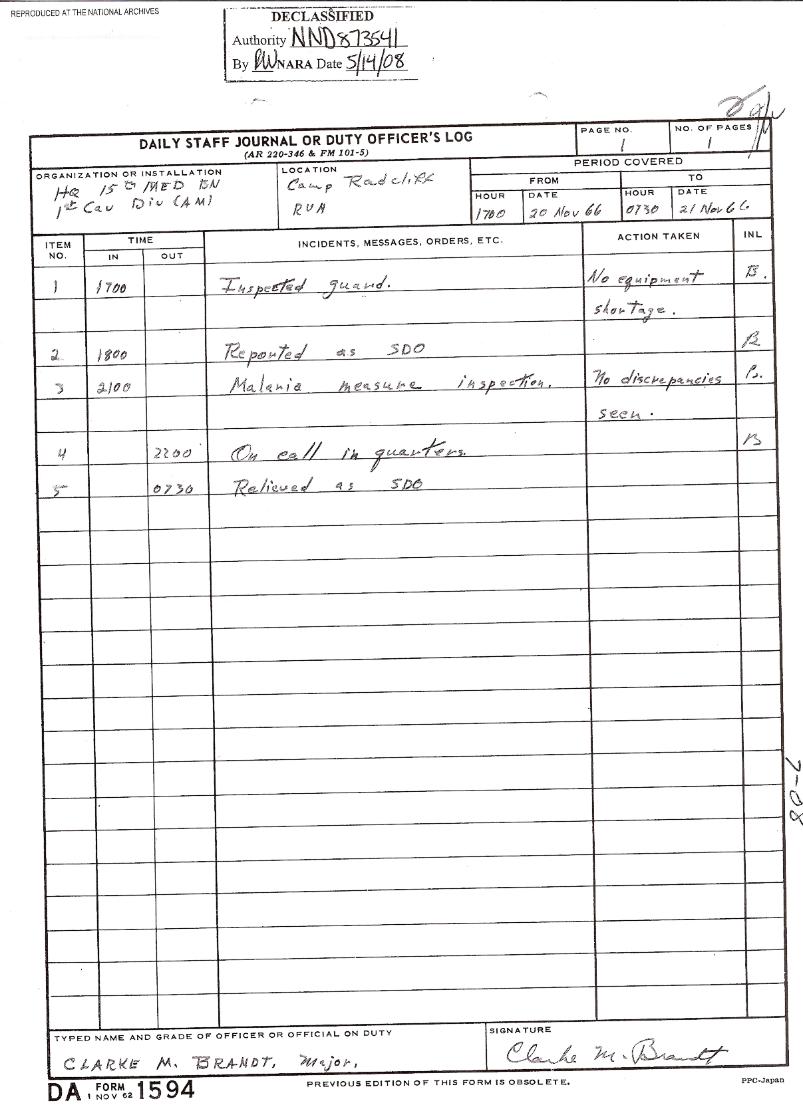 REPRODUCED AT THE NATIONAL ARCHIVES
DECLASSIFIED
Authority NND873541
By NARA Date 5/14/08
DAILY STAFF JOURNAL OR DUTY OFFICER'S LOG
(AR 220-346 & FM 101-5)
PAGE NO.
1
NO. OF PAGES
1
ORGANIZATION OR INSTALLATION
HQ 15th MED BN
1st Cav Div (AM)
LOCATION
Camp Radcliff
RVN
PERIOD COVERED
FROM
TO
HOUR
1700
DATE
20 Nov 66
HOUR
0730
DATE
21 Nov 66
ITEM NO.
TIME
IN
OUT
INCIDENTS, MESSAGES, ORDERS, ETC.
ACTION TAKEN
INL
1 1700 Inspected guard. No equipment B.
shortage.
2 1800 Reported as SDO B
3 2100 Malaria measure inspection. No discrepancies B.
seen.
4 2200 On call in quarters. B
5 0730 Relieved as SDO
7-08
TYPED NAME AND GRADE OF OFFICER OR OFFICIAL ON DUTY
CLARKE M. BRANDT, Major,
SIGNATURE
Clarke M. Brandt
DA FORM 1 NOV 62 1594
PREVIOUS EDITION OF THIS FORM IS OBSOLETE.
PPC-Japan